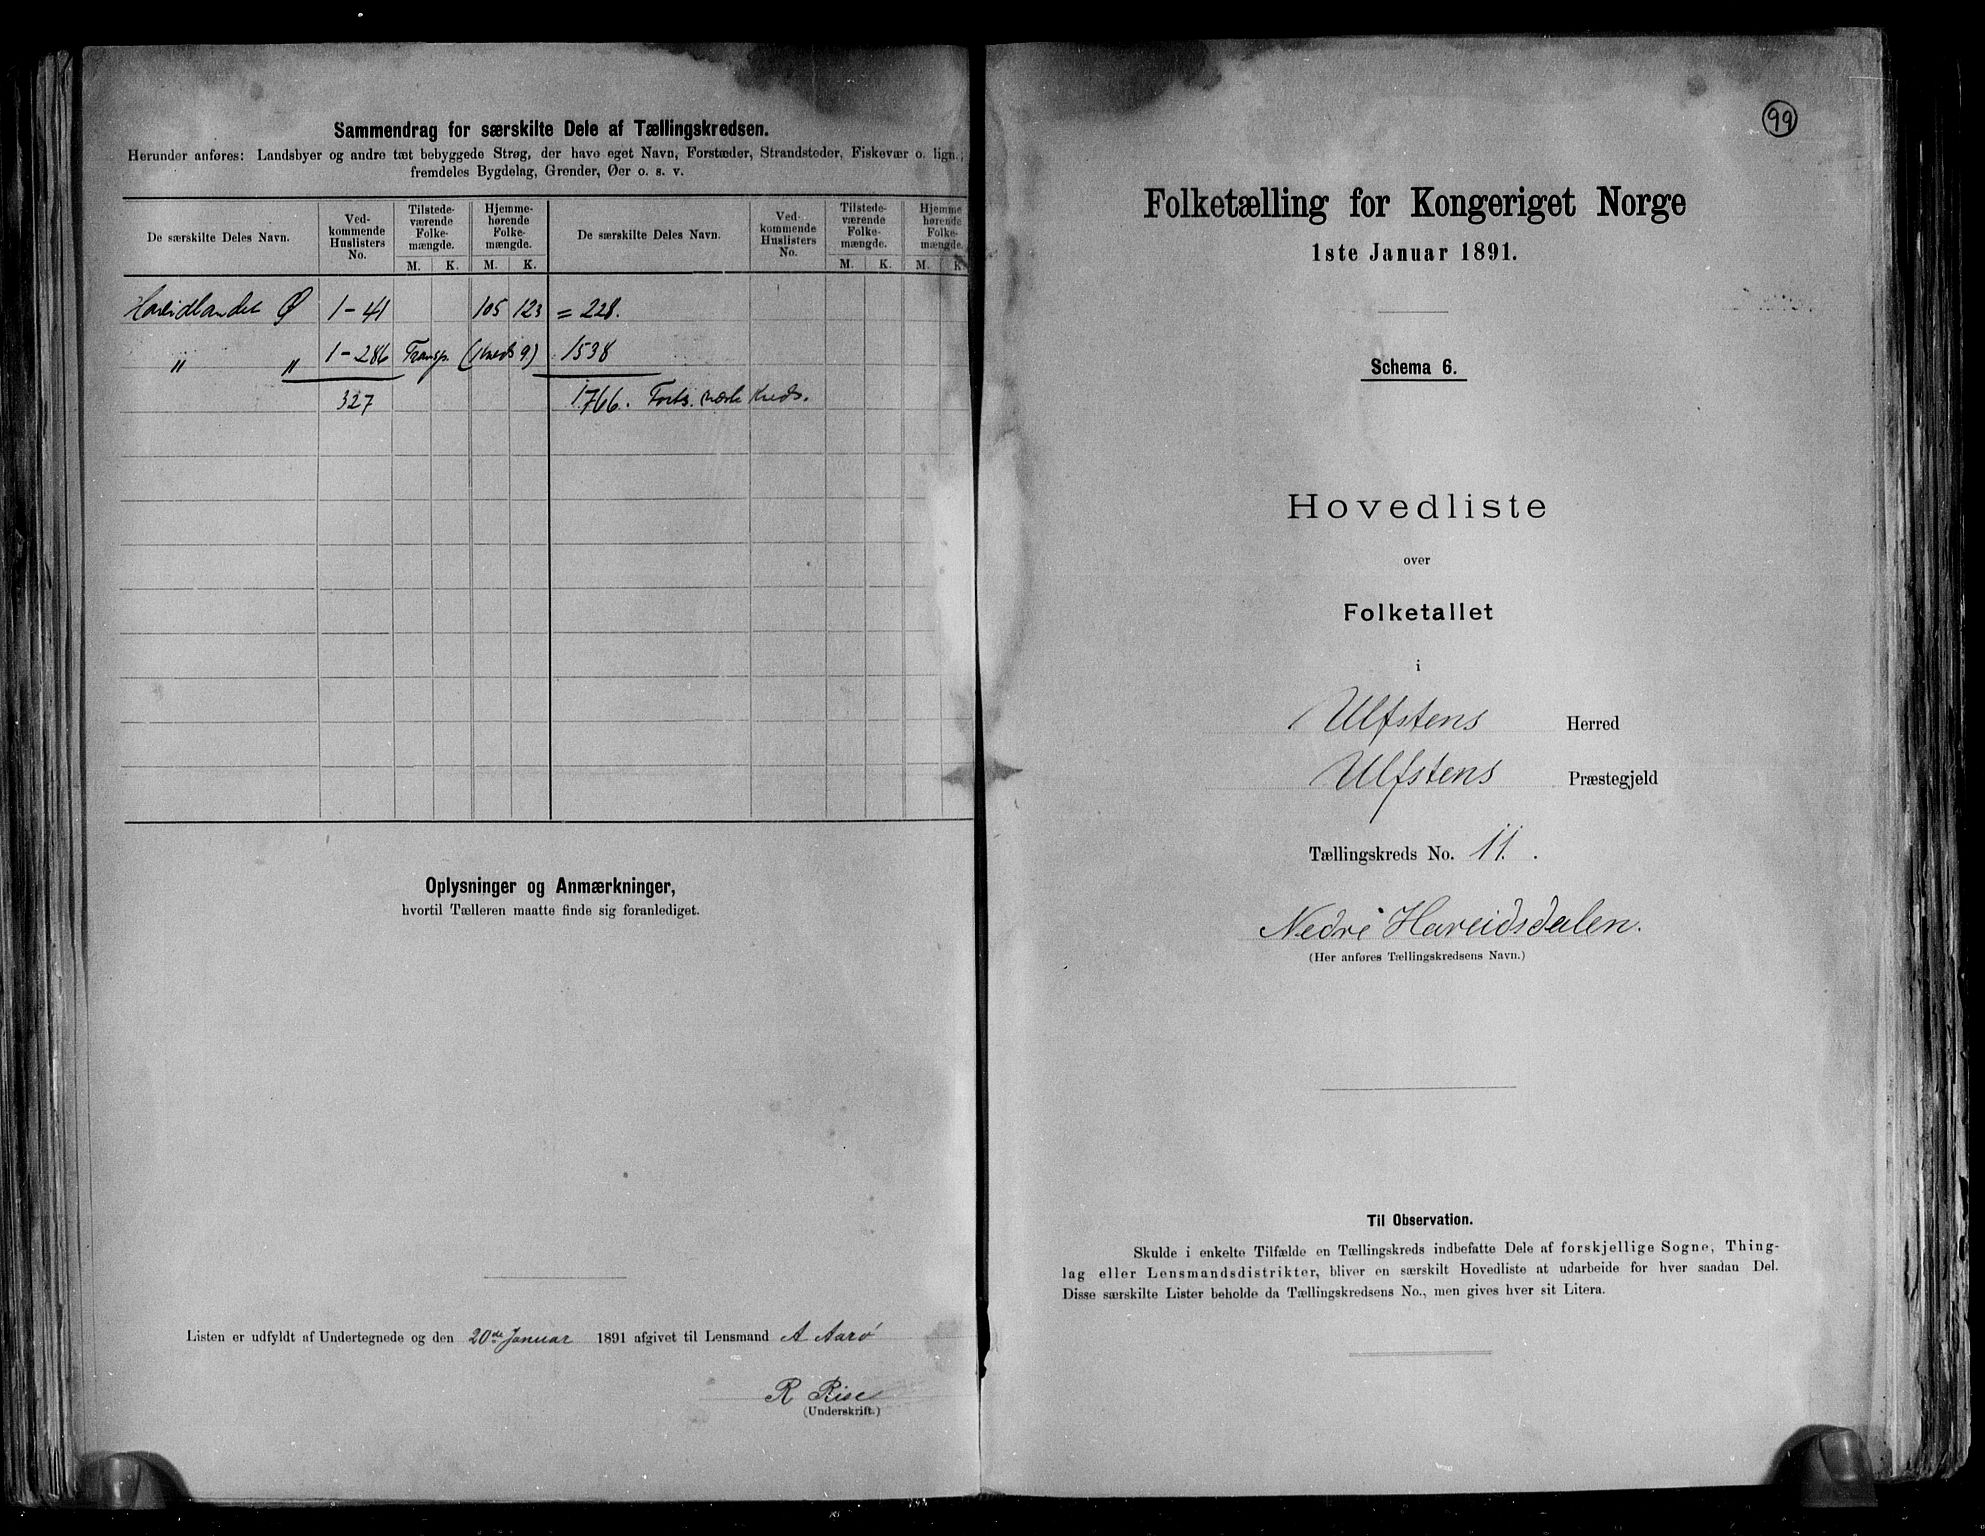 Sammendrag for særskilte Dele af Tællingskredsen.
Herunder anføres: Landsbyer og andre tæt bebyggede Strøg, der have eget Navn, Forstæder, Strandsteder, Fiskevær o. lign.;
fremdeles Bygdelag, Grender, Øer o. s. v.
De særskilte Deles Navn. Ved-kommende Huslisters No. Tilstede-værende Folke-mængde. Hjemme-hørende Folke-mængde. De særskilte Deles Navn. Ved-kommende Huslisters No. Tilstede-værende Folke-mængde. Hjemme hørende Folke-mængde.
M. K. M. K. M. K. M. K.
Hareidlandet Ø 1-41 105 123 = 228.
" " 1-286 Transp. (Kreds 9) 1538
327 1766. Forts. næste Kreds.
Oplysninger og Anmærkninger,
hvortil Tælleren maatte finde sig foranlediget.
Listen er udfyldt af Undertegnede og den 20de Januar 1891 afgivet til Lensmand A Aarø
R Rise
(Underskrift.)
99
Folketælling for Kongeriget Norge
1ste Januar 1891.
Schema 6.
Hovedliste
over
Folketallet
i
Ulfstens Herred
Ulfstens Præstegjeld
Tællingskreds No. 11.
Nedre Hareidsdalen.
(Her anføres Tællingskredsens Navn.)
Til Observation.
Skulde i enkelte Tilfælde en Tællingskreds indbefatte Dele af forskjellige Sogne, Thing-
lag eller Lensmandsdistrikter, bliver en særskilt Hovedliste at udarbeide for hver saadan Del.
Disse særskilte Lister beholde da Tællingskredsens No., men gives hver sit Litera.